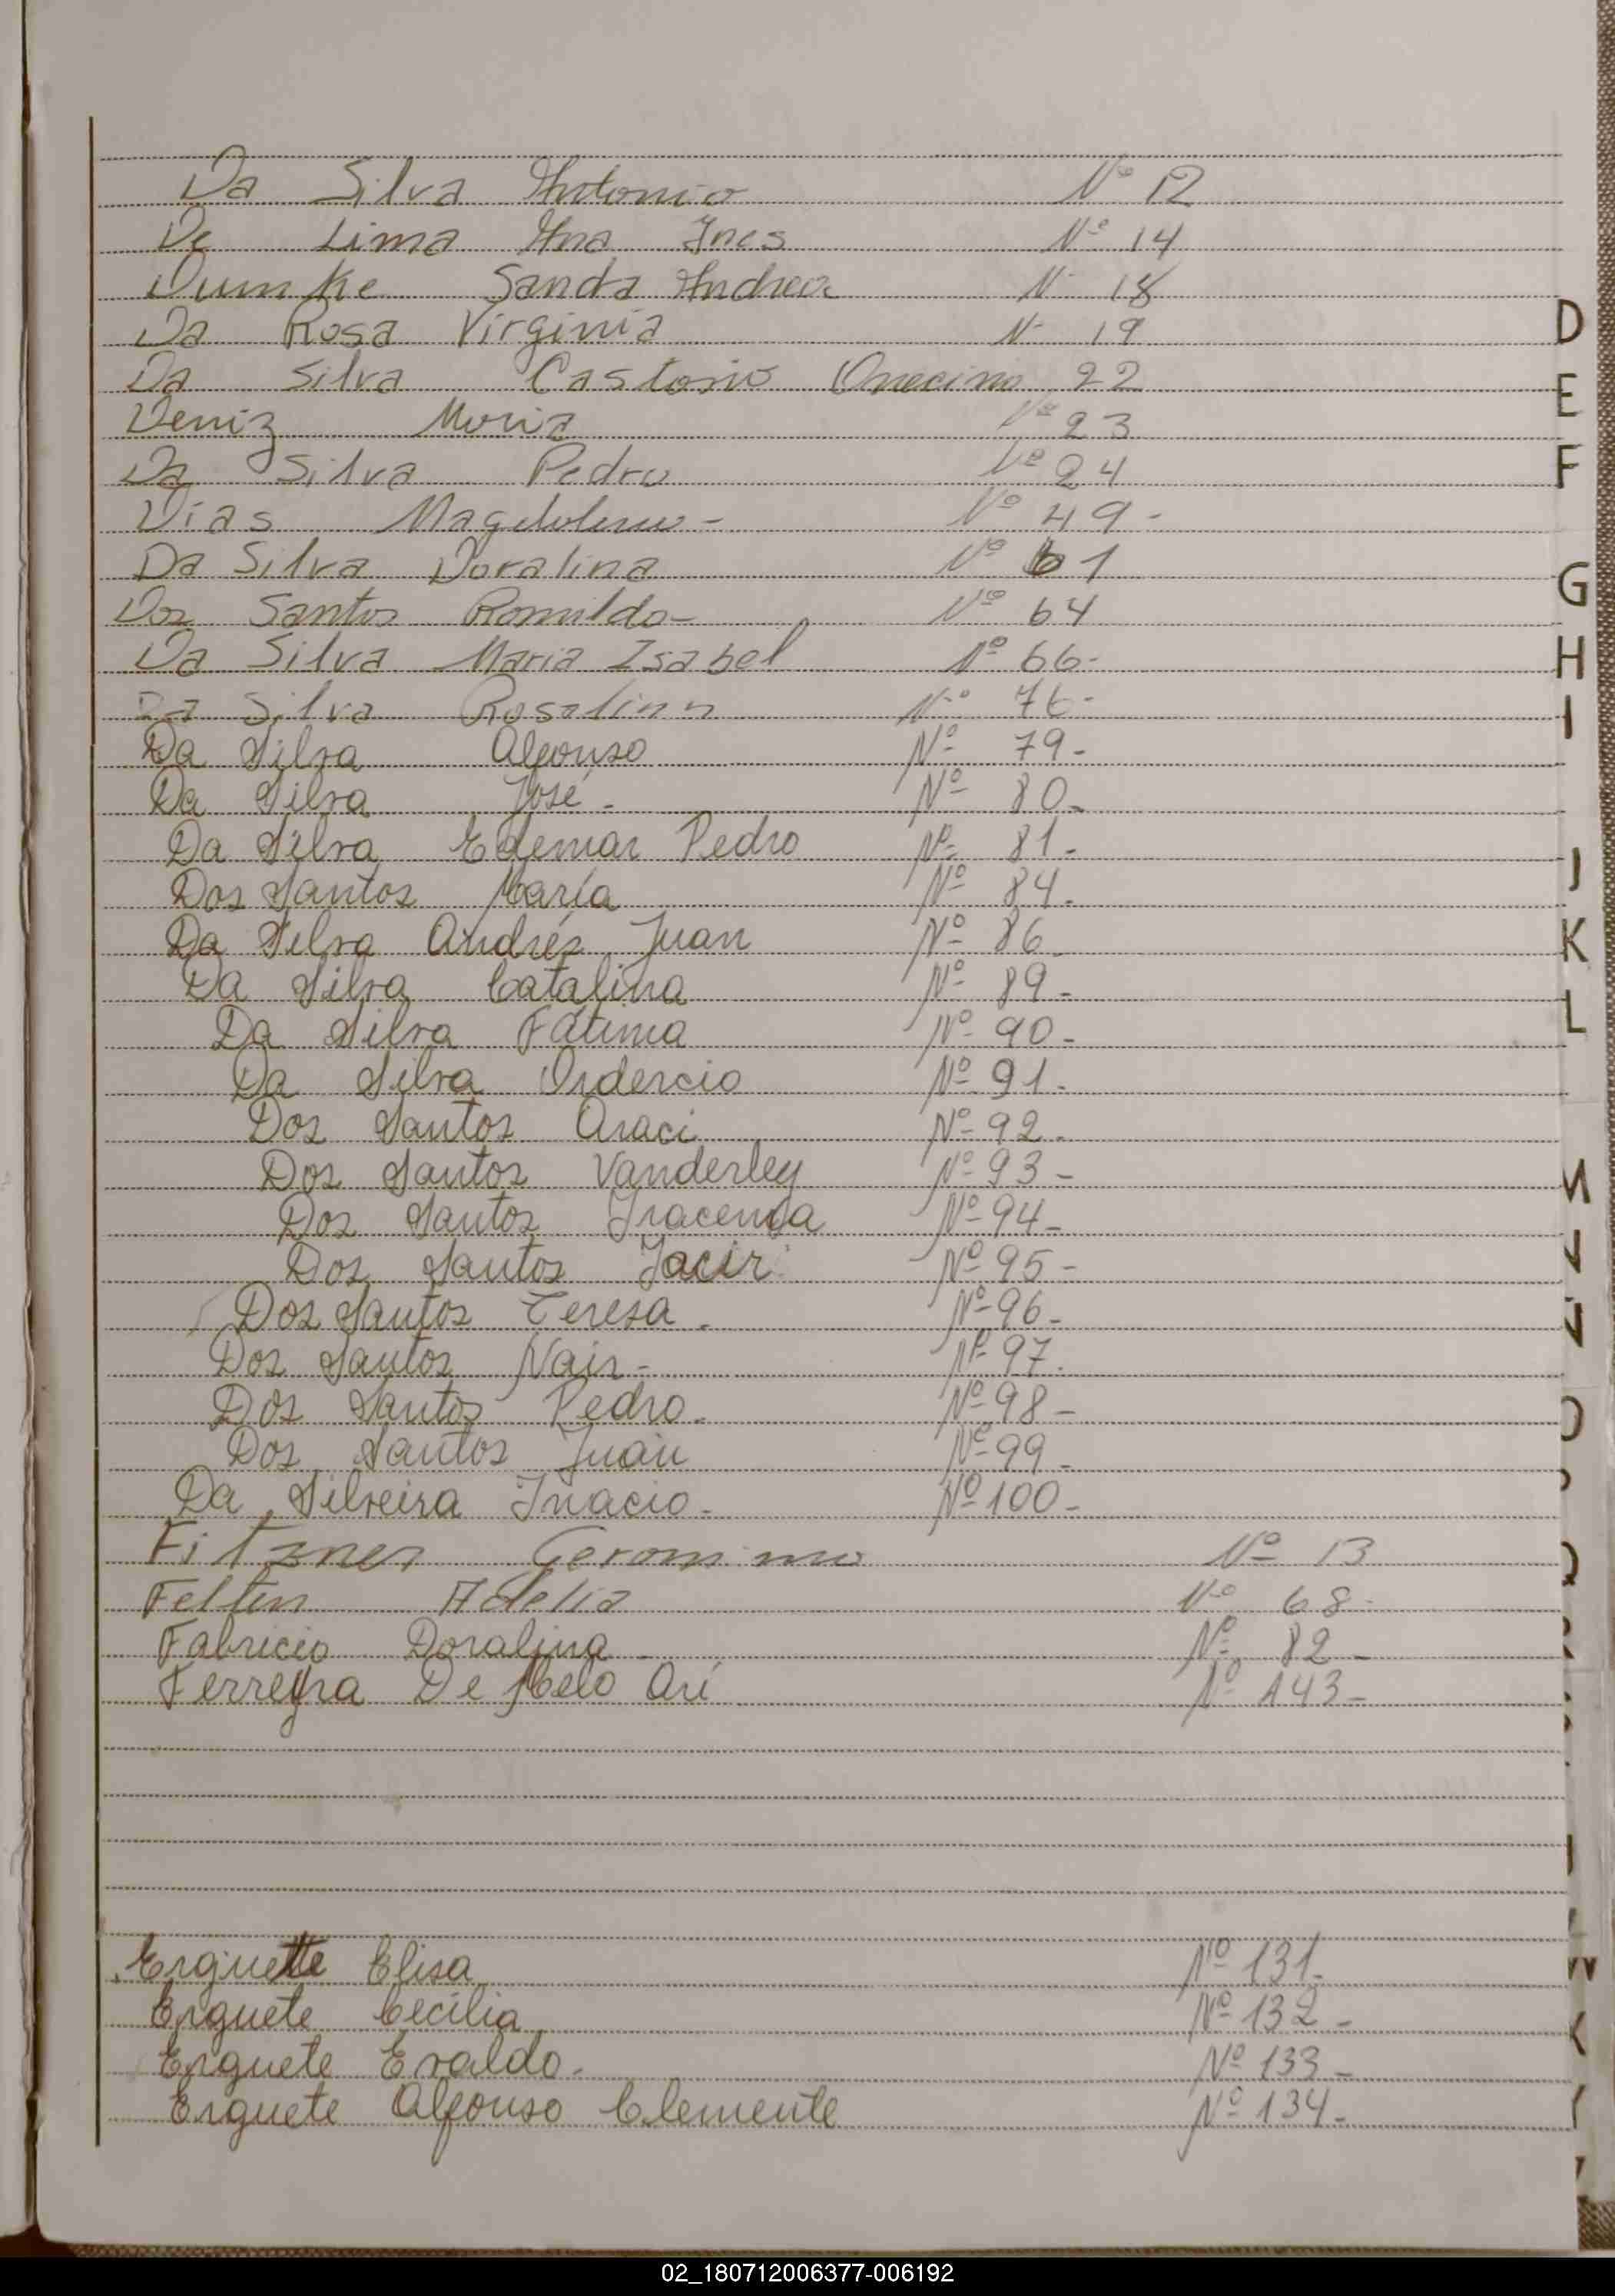 Da Silva Antonio Nº 12
De Lima Ana Ines Nº 14
Dumke Sanda Andrea N- 18
Da Rosa Virginia N- 19
Da Silva Castorio Onecimo 22
Deniz Moria Nº 23
Da Silva Pedro Nº 24
Dias Nº 49-
Da Silva Doralina Nº 61
Dos Santos Romildo- Nº 64
Da Silva Maria Isabel Nº 66-
Da Silva Rosalina Nº 76-
Da Silva Alfonso Nº 79-
Da Silva José- Nº 80-
Da Silva Edemar Pedro Nº 81-
Dos Santos María Nº 84-
Da Silva Andrés Juan Nº 86-
Da Silva Catalina Nº 89-
Da Silva Fátima Nº 90-
Da Silva Ordercio Nº 91-
Dos Santos Araci Nº 92-
Dos Santos Vanderley Nº 93-
Dos Santos Iracema Nº 94-
Dos Santos Jacir Nº 95-
Dos Santos Teresa- Nº 96-
Dos Santos Nair- Nº 97-
Dos Santos Pedro- Nº 98-
Dos Santos Juan Nº 99-
Da Silveira Inacio- Nº 100-
Fitzner Geronimo Nº 13
Felten Adelia Nº 68-
Fabricio Doralina Nº 82-
Ferreyra De Melo Ari Nº 143-
Erguette Elisa Nº 131-
Erguete Cecilia Nº 132-
Erguete Evaldo- Nº 133-
Erguete Alfonso Clemente Nº 134-
D
E
F
G
H
I
J
K
L
M
N
02_180712006377-006192